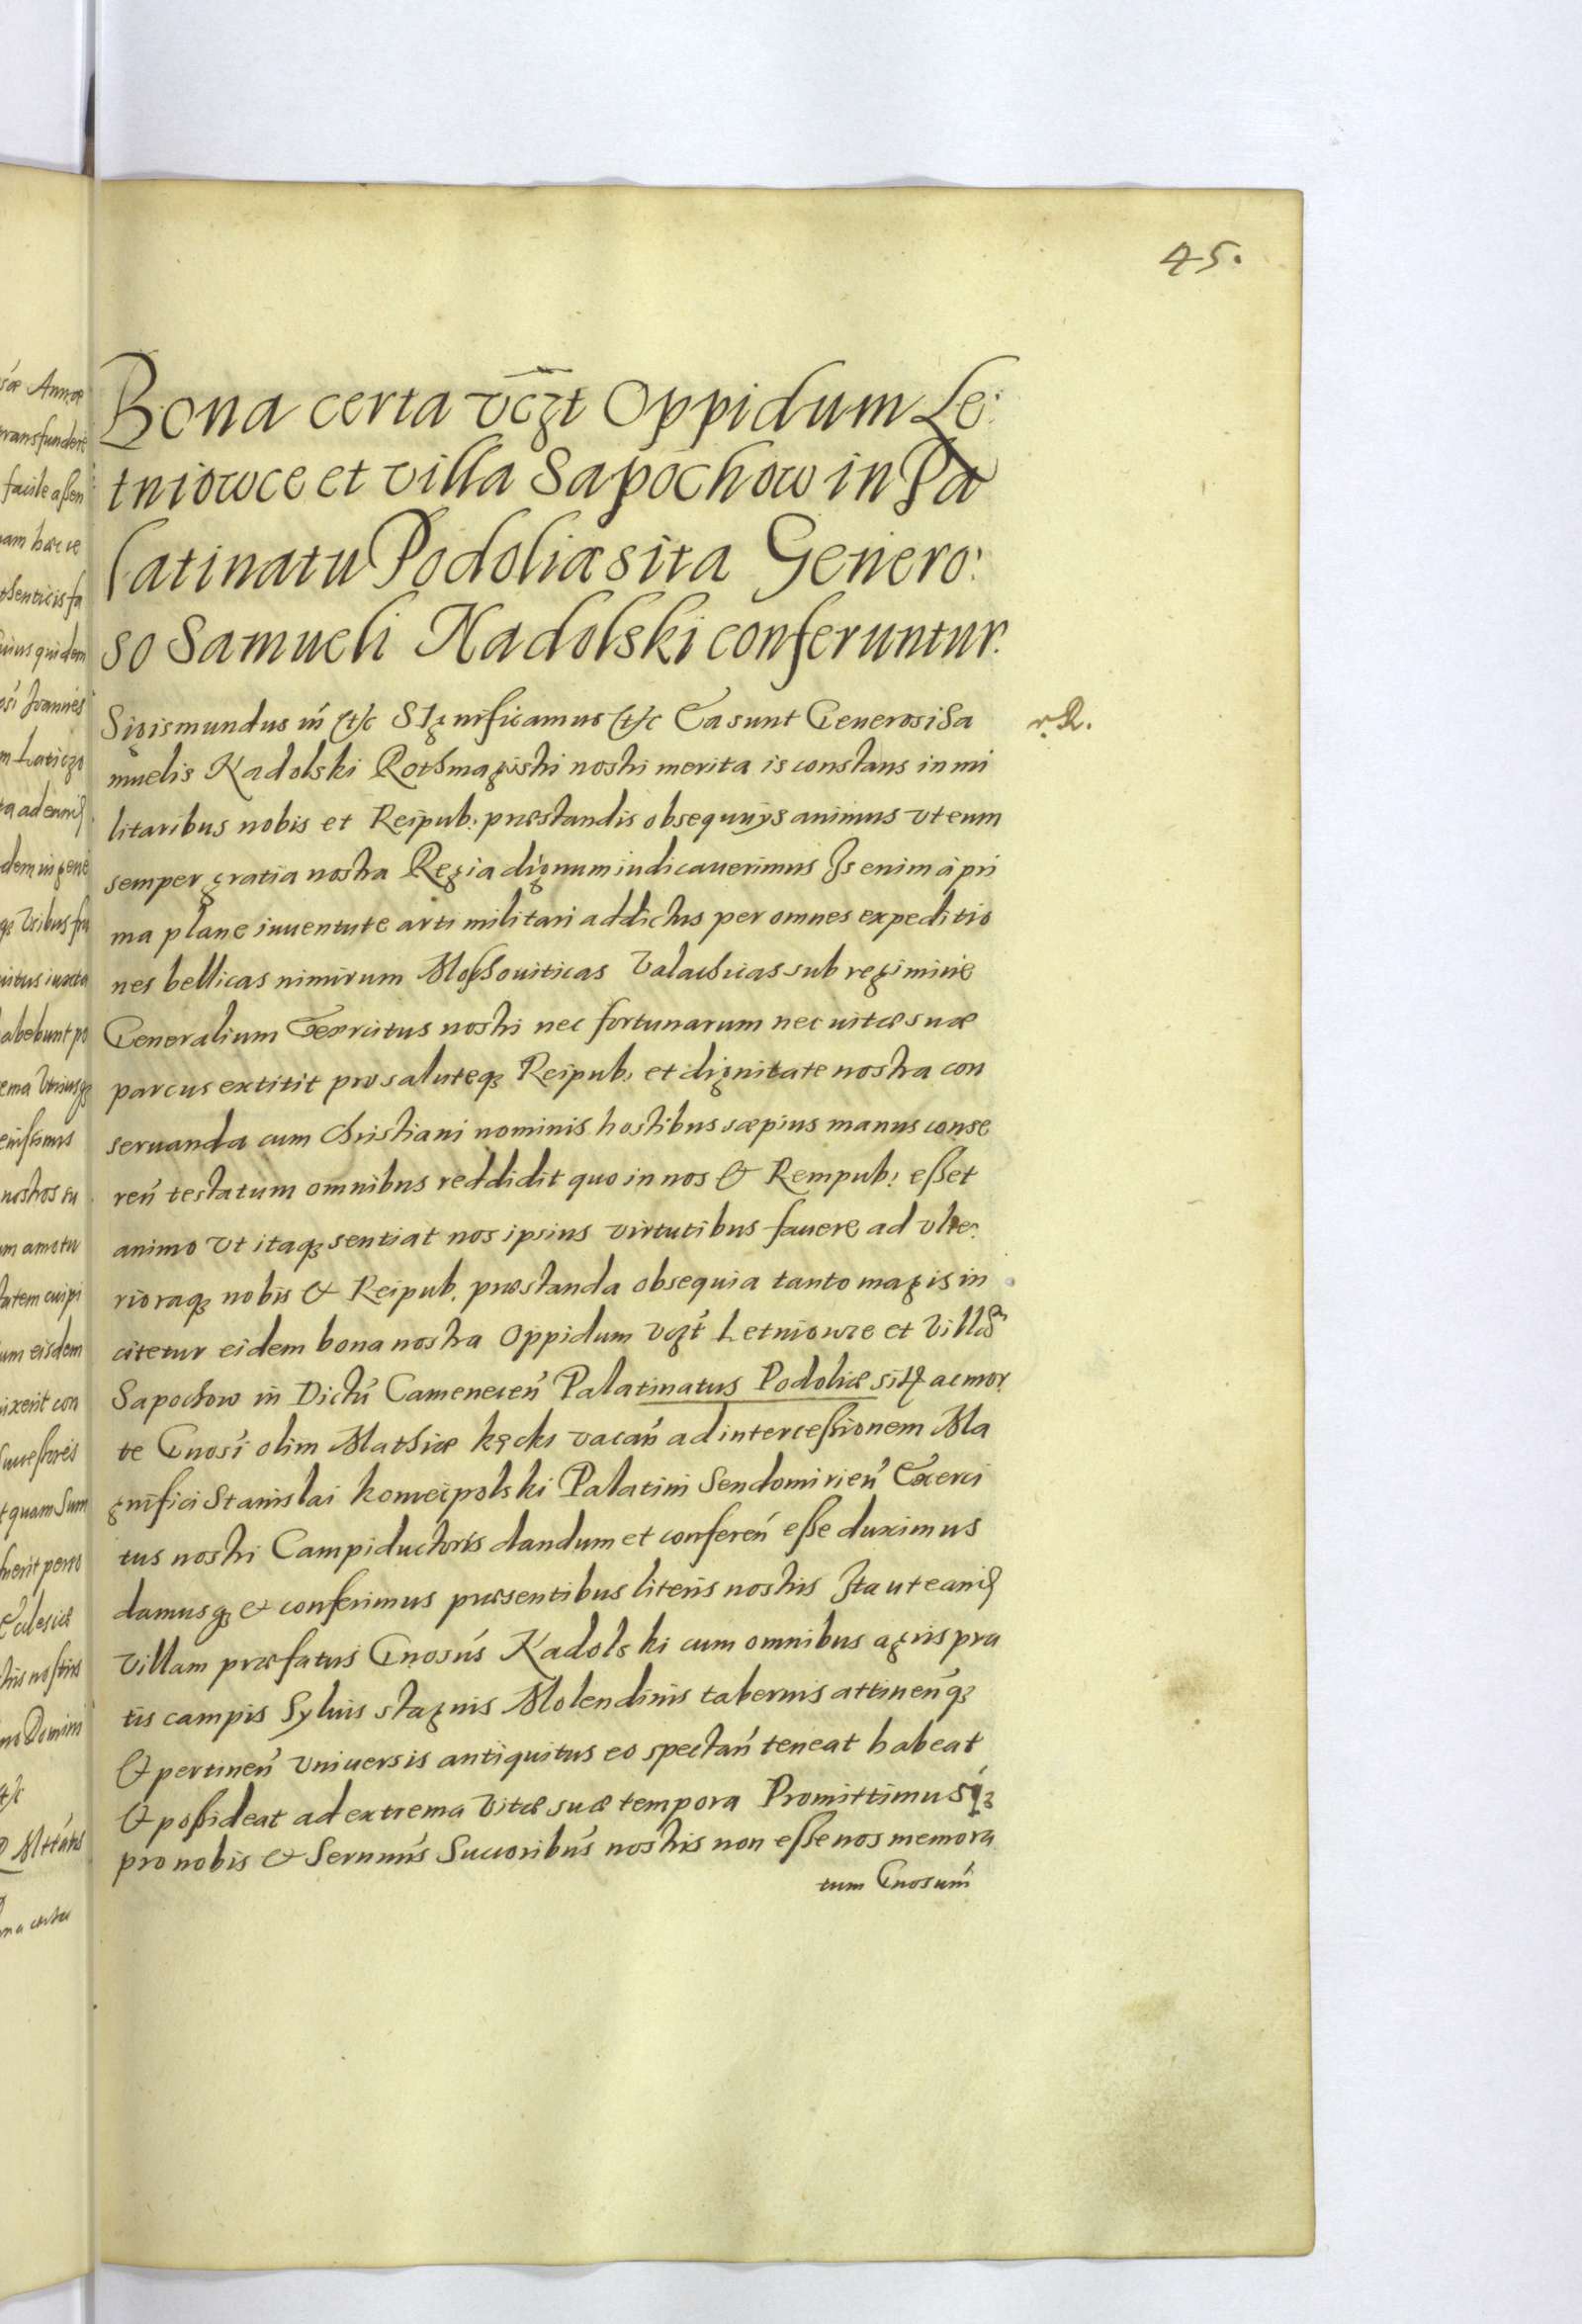 45.
Bona certa vczt Oppidum Le:
tniowce et villa Sapochow in Pa
latinatu Podoliæ sita Genero:
so Samueli Kadolski conferuntur.
Sigismundus iii etc Significamus etc Ea sunt Generosi Sa
r. R.
muelis Kadolski Rothmagistri nostri merita is constans in mi
litaribus nobis et Reipub: præstandis obsequiys animus vt eum
semper gratia nostra Regia dignum iudicauerimus Is enim à pri
ma plane iuuentute arti militari addictus per omnes expeditio
nes bellicas nimirum Moschouiticas Valachicas sub regimine
Generalium Exercitus nostri nec fortunarum nec uitæ suæ
parcus extitit pro saluteqз Reipub: et dignitate nostra con
seruanda cum Christiani nominis hostibus sæpius manus conse
reń testatum omnibus reddidit quo in nos & Rempub: eßet
animo Vt itaqз sentiat nos ipsius virtutibus fauere ad vlte:
rioraqз nobis & Reipub. præstanda obsequia tanto magis in
citetur eidem bona nostra Oppidum vczt Letniowce et Villã
Sapochow in Dictú Camenecen̄ Palatinatus Podoliæ sita ac mor
te Gnosi olim Mathiæ kęcki vacan̄ ad interceßionem Ma
gnifici Stanislai koniecpolski Palatini Sendomirien̄ Exerci
tus nostri Campiductoris dandum et conferen̄ eße duximus
damusqз & conferimus præsentibus literis nostris Ita ut eandem
villam præfatus Gnosús Kadolski cum omnibus agris pra
tis campis Syluis stagnis Molendinis tabernis attinen̄qз
& pertinen̄ vniuersis antiquitus eo spectan̄ teneat habeat
& poßideat ad extrema vitæ suæ tempora Promittimusqз
pro nobis & Sernmis Sucoribus nostris non eße nos memora
tum Gnosum